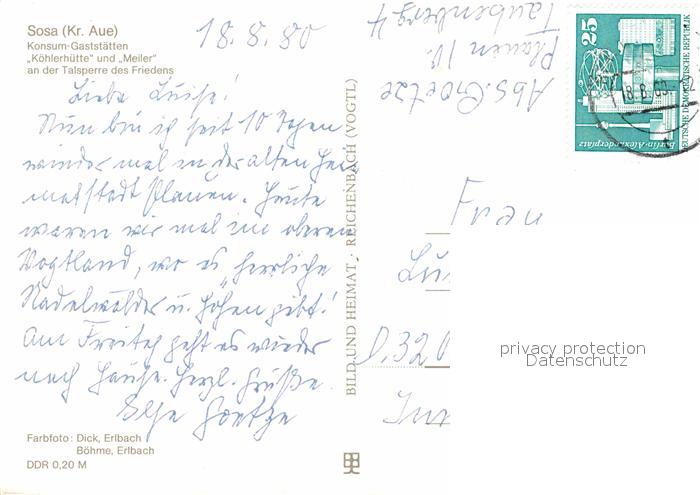 Sosa (Kr. Aue)
Konsum-Gaststätten
„Köhlerhütte" und „Meiler"
an der Talsperre des Friedens
18.8.80
Liebe Luise!
Nun bin ich seit 10 Tagen
wieder mal in der alten Hei
matstadt Plauen. Heute
waren wir mal im oberen
Vogtland, wo es herrliche
Nadelwälder u. Höhen gibt!
Am Freitag geht es wieder
nach Hause. Herzl. Grüße
Else Goetze
Farbfoto: Dick, Erlbach
Böhme, Erlbach
DDR 0,20 M
BILD UND HEIMAT, REICHENBACH (VOGTL)
Abs. Goetze
Plauen
Taubenberg 4
25
Berlin-Alexanderplatz
DEUTSCHE DEMOKRATISCHE REPUBLIK
Frau
Lui
D. 320
privacy protection
Datenschutz